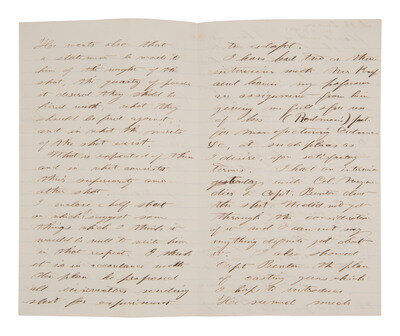 He wants also that
a statement be made to
him of the weight of the
shot, the quantity of powder
it desired they should be
fired with, what they
should be fired against,
and in what the merits
of the shot exist.
What is expected of them
and in what consists
their superiority over
other shot.
I enclose a half sheet
on which I suggest some
things which I think it
would be well to write him
in that respect. I think
it is in accordance with
the plan he proposed
all inventors sending
shot for experiment
to adopt.
I have had two or three
interviews with Mr
about having my
an assignment from him
giving in full
of his (Rodman) pat.
for manufacturing Ordnance
&c, at such places as
I desire, upon satisfactory
terms. I had an interview
yesterday with Col.
& Capt. Benton about
the shot. Maddox not yet
through the consideration
of it and I can not say
anything definite yet about
it. I also showed
Capt. Benton the plan
of casting guns which
I hope to introduce.
He seemed much